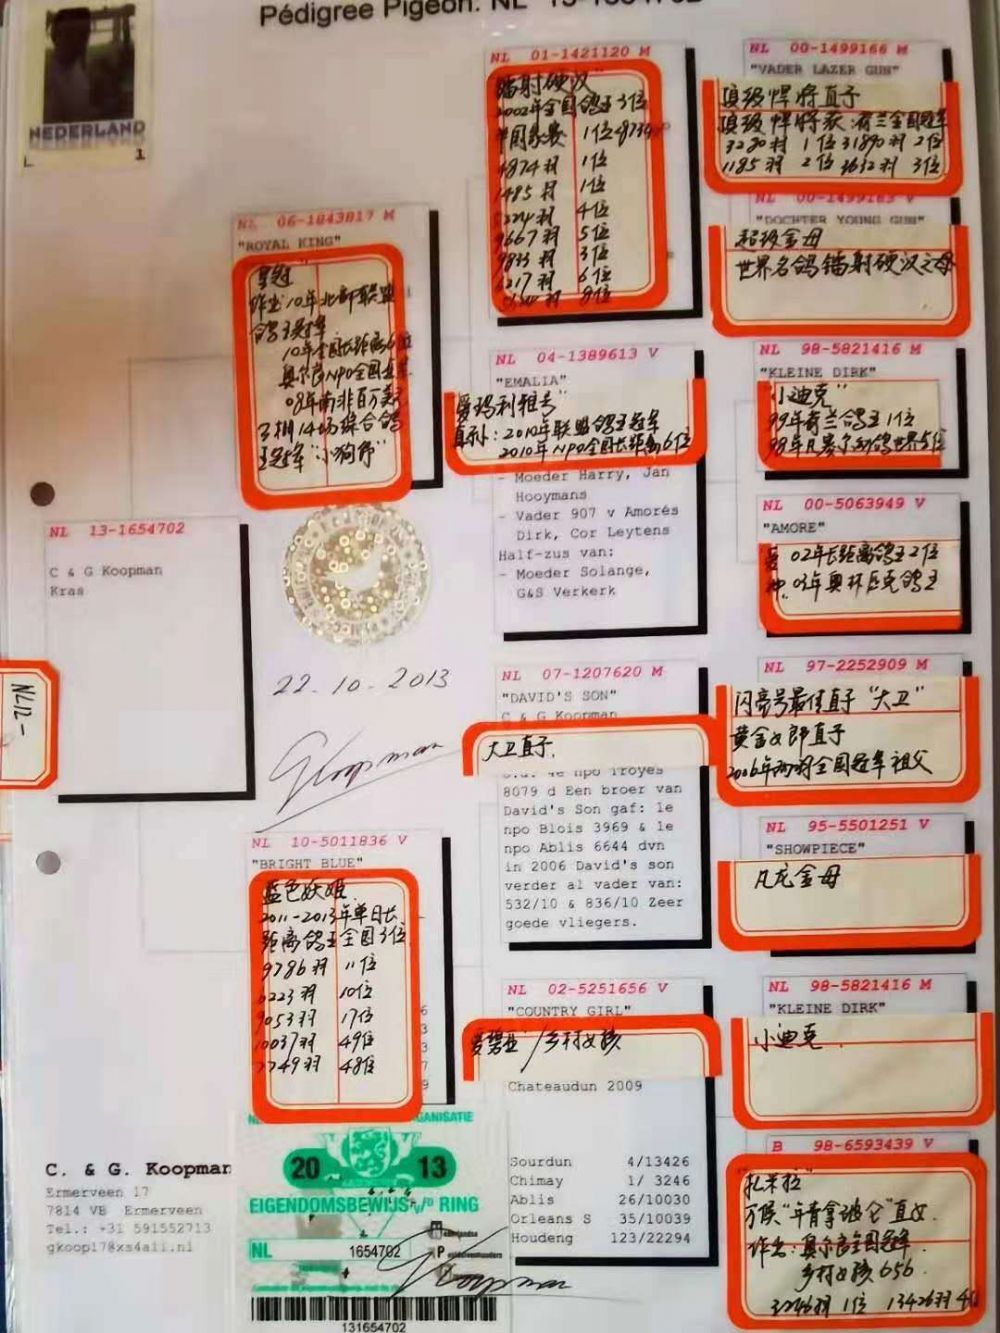 Pédigree Pigeon: NL
NEDERLAND
1
NL 13-1654702
C & G Koopman
Kras
NL12-
22.10.2013
GKoopman
NL 06-1843817 M
"ROYAL KING"
作出10年北部联盟
鸽王冠军
NL 10-5011836 V
"BRIGHT BLUE"
蓝色妖姬
2011-2013年单日长
距离鸽王全国3位
9786羽 11位
6223羽 10位
9053羽 17位
10037羽 49位
7749羽 48位
NL 01-1421120 M
镭射硬汉"
2002年全国鸽王3位
4874羽 1位
1485羽 1位
5224羽 4位
9667羽 5位
9833羽 3位
6217羽 6位
NL 04-1389613 V
"EMALIA"
爱玛利雅号"
直孙:2010年联盟鸽王冠军
2010年NPO全国长距离6位
- Moeder Harry, Jan
Hooymans
- Vader 907 v Amorés
Dirk, Cor Leytens
Half-zus van:
- Moeder Solange,
G&S Verkerk
NL 07-1207620 M
"DAVID'S SON"
C & G Koopman
大卫直子.
o.a. 4e npo Troyes
8079 d Een broer van
David's Son gaf: 1e
npo Blois 3969 & 1e
npo Ablis 6644 dvn
in 2006 David's son
verder al vader van:
532/10 & 836/10 Zeer
goede vliegers.
NL 02-5251656 V
"COUNTRY GIRL"
爱碧亚/乡村女孩
Chateaudun 2009
Sourdun 4/13426
Chimay 1/ 3246
Ablis 26/10030
Orleans S 35/10039
Houdeng 123/22294
NL 00-1499166 M
"VADER LAZER GUN"
顶级悍将直子
顶级悍将获:荷兰全国冠军
3230羽 1位 31890羽 2位
1185羽 2位 3632羽 3位
NL 00-1499165 V
"DOCHTER YOUNG GUN"
超级金母
世界名鸽镭射硬汉之母
NL 98-5821416 M
"KLEINE DIRK"
小迪克"
99年荷兰鸽王1位
98年凡赛尔幼鸽世界5位
NL 00-5063949 V
"AMORE"
02年长距离鸽王2位
03年奥林匹克鸽王
NL 97-2252909 M
闪亮号最佳直子"大卫"
黄金女郎直子
2006年两羽全国冠军祖父
NL 95-5501251 V
"SHOWPIECE"
凡龙金母
NL 98-5821416 M
"KLEINE DIRK"
小迪克.
B 98-6593439 V
扎米拉"
万侯"年青拿破仑"直女.
作出:奥尔良全国冠军.
乡村女孩656
3246羽1位 13426羽4位
C. & G. Koopman
Ermerveen 17
7814 VB Ermerveen
Tel.: +31 591552713
gkoop17@xs4all.nl
2013
EIGENDOMSBEWIJS v/d RING
NL 1654702
GKoopman
131654702